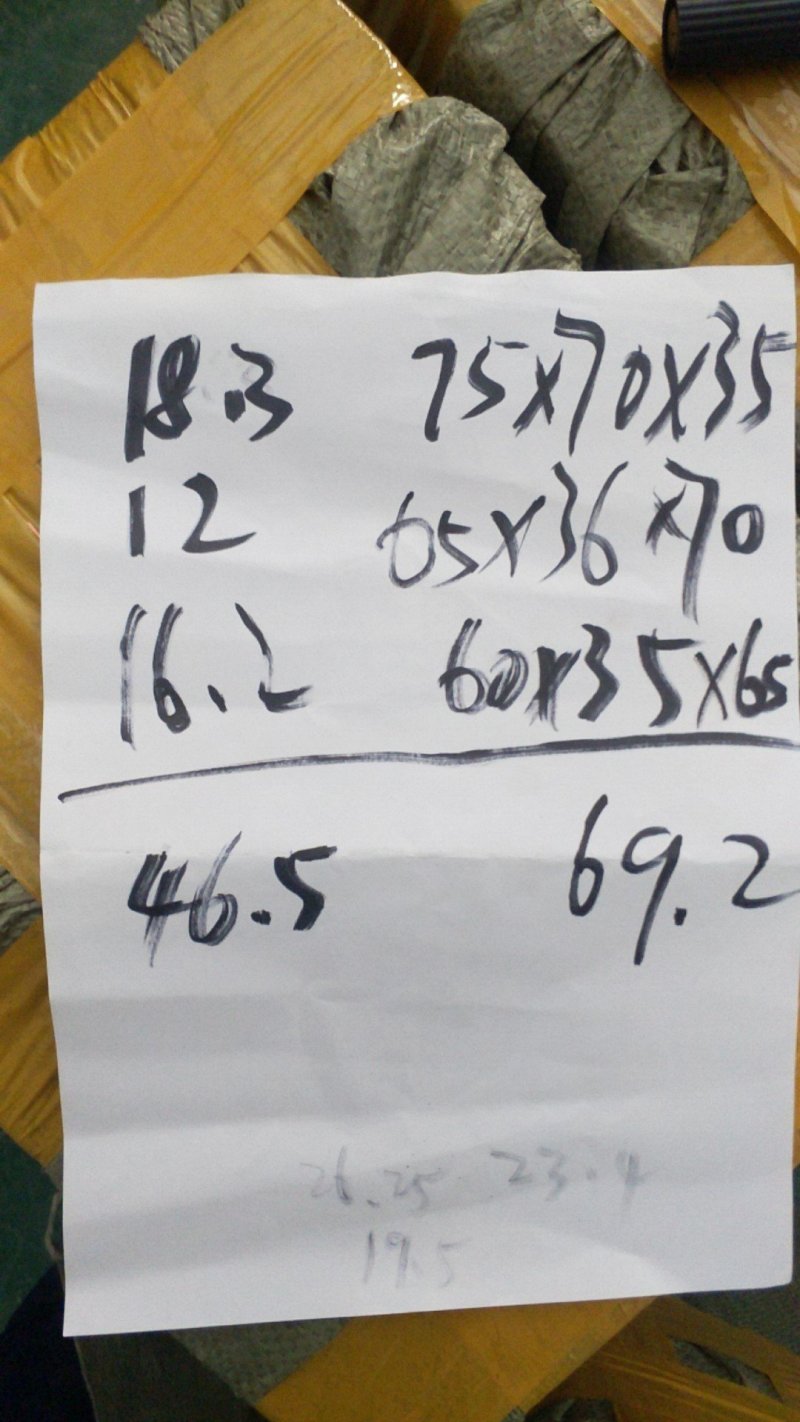 18.3 75x70x35
12 65x36x70
16.2 60x35x65
46.5 69.2
26.25 23.4
19.5